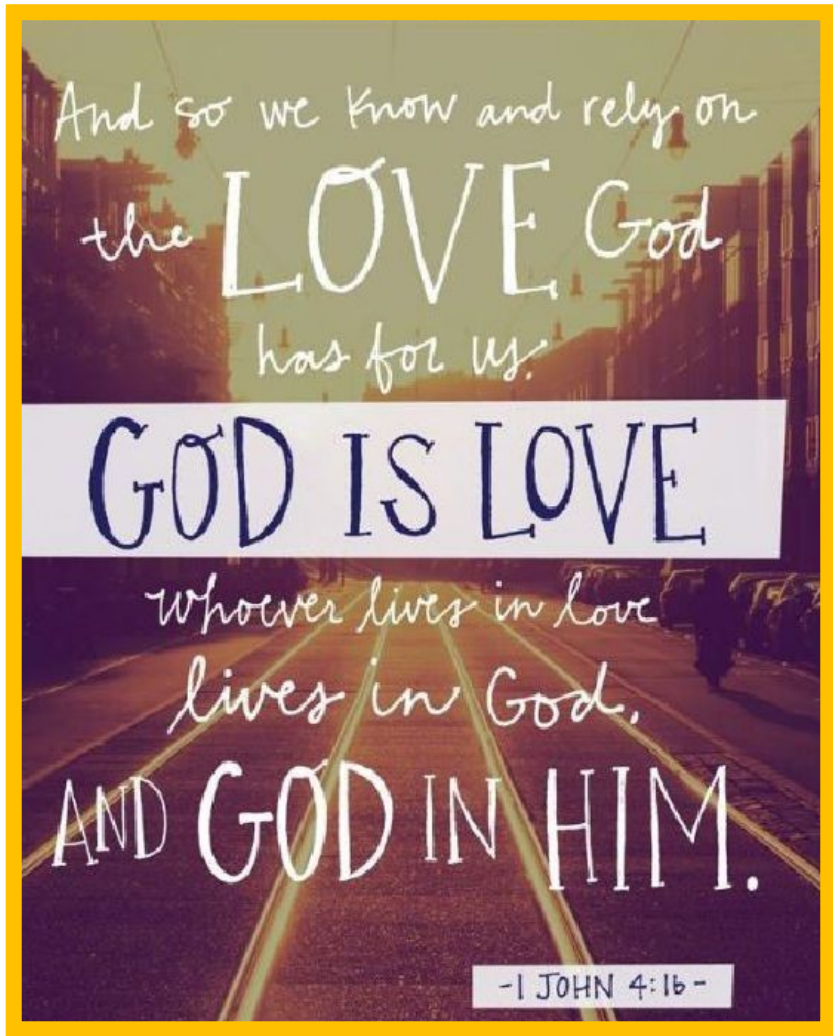 And so we know and rely on
the LOVE God
has for us.
GOD IS LOVE
whoever lives in love
lives in God,
AND GOD IN HIM.
-1 JOHN 4:16-